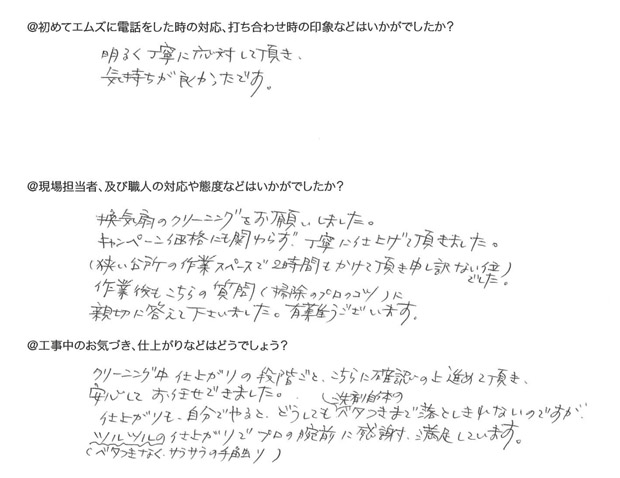 @初めてエムズに電話をした時の対応、打ち合わせ時の印象などはいかがでしたか？
明るく丁寧に応対して頂き、
気持ちが良かったです。
@現場担当者、及び職人の対応や態度などはいかがでしたか？
換気扇のクリーニングをお願いしました。
キャンペーン価格にも関わらず、丁寧に仕上げて頂きました。
(狭い台所の作業スペースで2時間もかけて頂き申し訳ない位)
でした。
作業後もこちらの質問(掃除のプロのコツ)に
親切に答えて下さいました。有難うございます。
@工事中のお気づき、仕上がりなどはどうでしょう？
クリーニング中 仕上がりの段階ごと、こちらに確認の上進めて頂き、
安心してお任せできました。
洗剤自体の
仕上がりも、自分でやると、どうしてもベタつきまで落としきれないのですが、
ツルツルの仕上がりでプロの腕前に感謝、満足しています。
(ベタつきなく、サラサラの手触り)